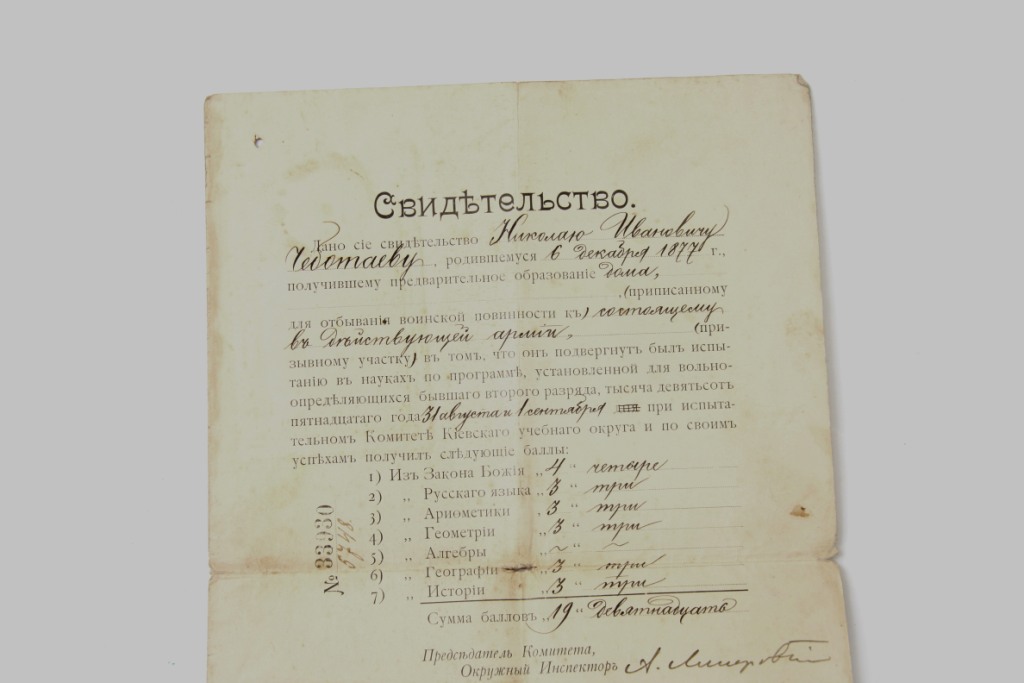 Свидѣтельство.
Дано сіе свидѣтельство Николаю Ивановичу
Чеботаеву, родившемуся 6 декабря 1877 г.,
получившему предварительное образованіе дома,
(приписанному
для отбыванія воинской повинности къ) состоящему
въ дѣйствующей арміи, (при-
зывному участку) въ томъ, что онъ подвергнутъ былъ испы-
танію въ наукахъ по программѣ, установленной для вольно-
опредѣляющихся бывшаго второго разряда, тысяча девятьсотъ
пятнадцатаго года 31 августа и 1 сентября при испыта-
тельномъ Комитетѣ Кіевскаго учебнаго округа и по своимъ
успѣхамъ получилъ слѣдующіе баллы:
1) Изъ Закона Божія „ 4 “ четыре
2) „ Русскаго языка „ 3 “ три
3) „ Ариѳметики „ 3 “ три
4) „ Геометріи „ 3 “ три
5) „ Алгебры „ ~ “ ~
6) „ Географіи „ 3 “ три
7) „ Исторіи „ 3 “ три
Сумма балловъ „ 19 “ девятнадцать
Предсѣдатель Комитета,
Окружный Инспекторъ А.
№ 33930
5748